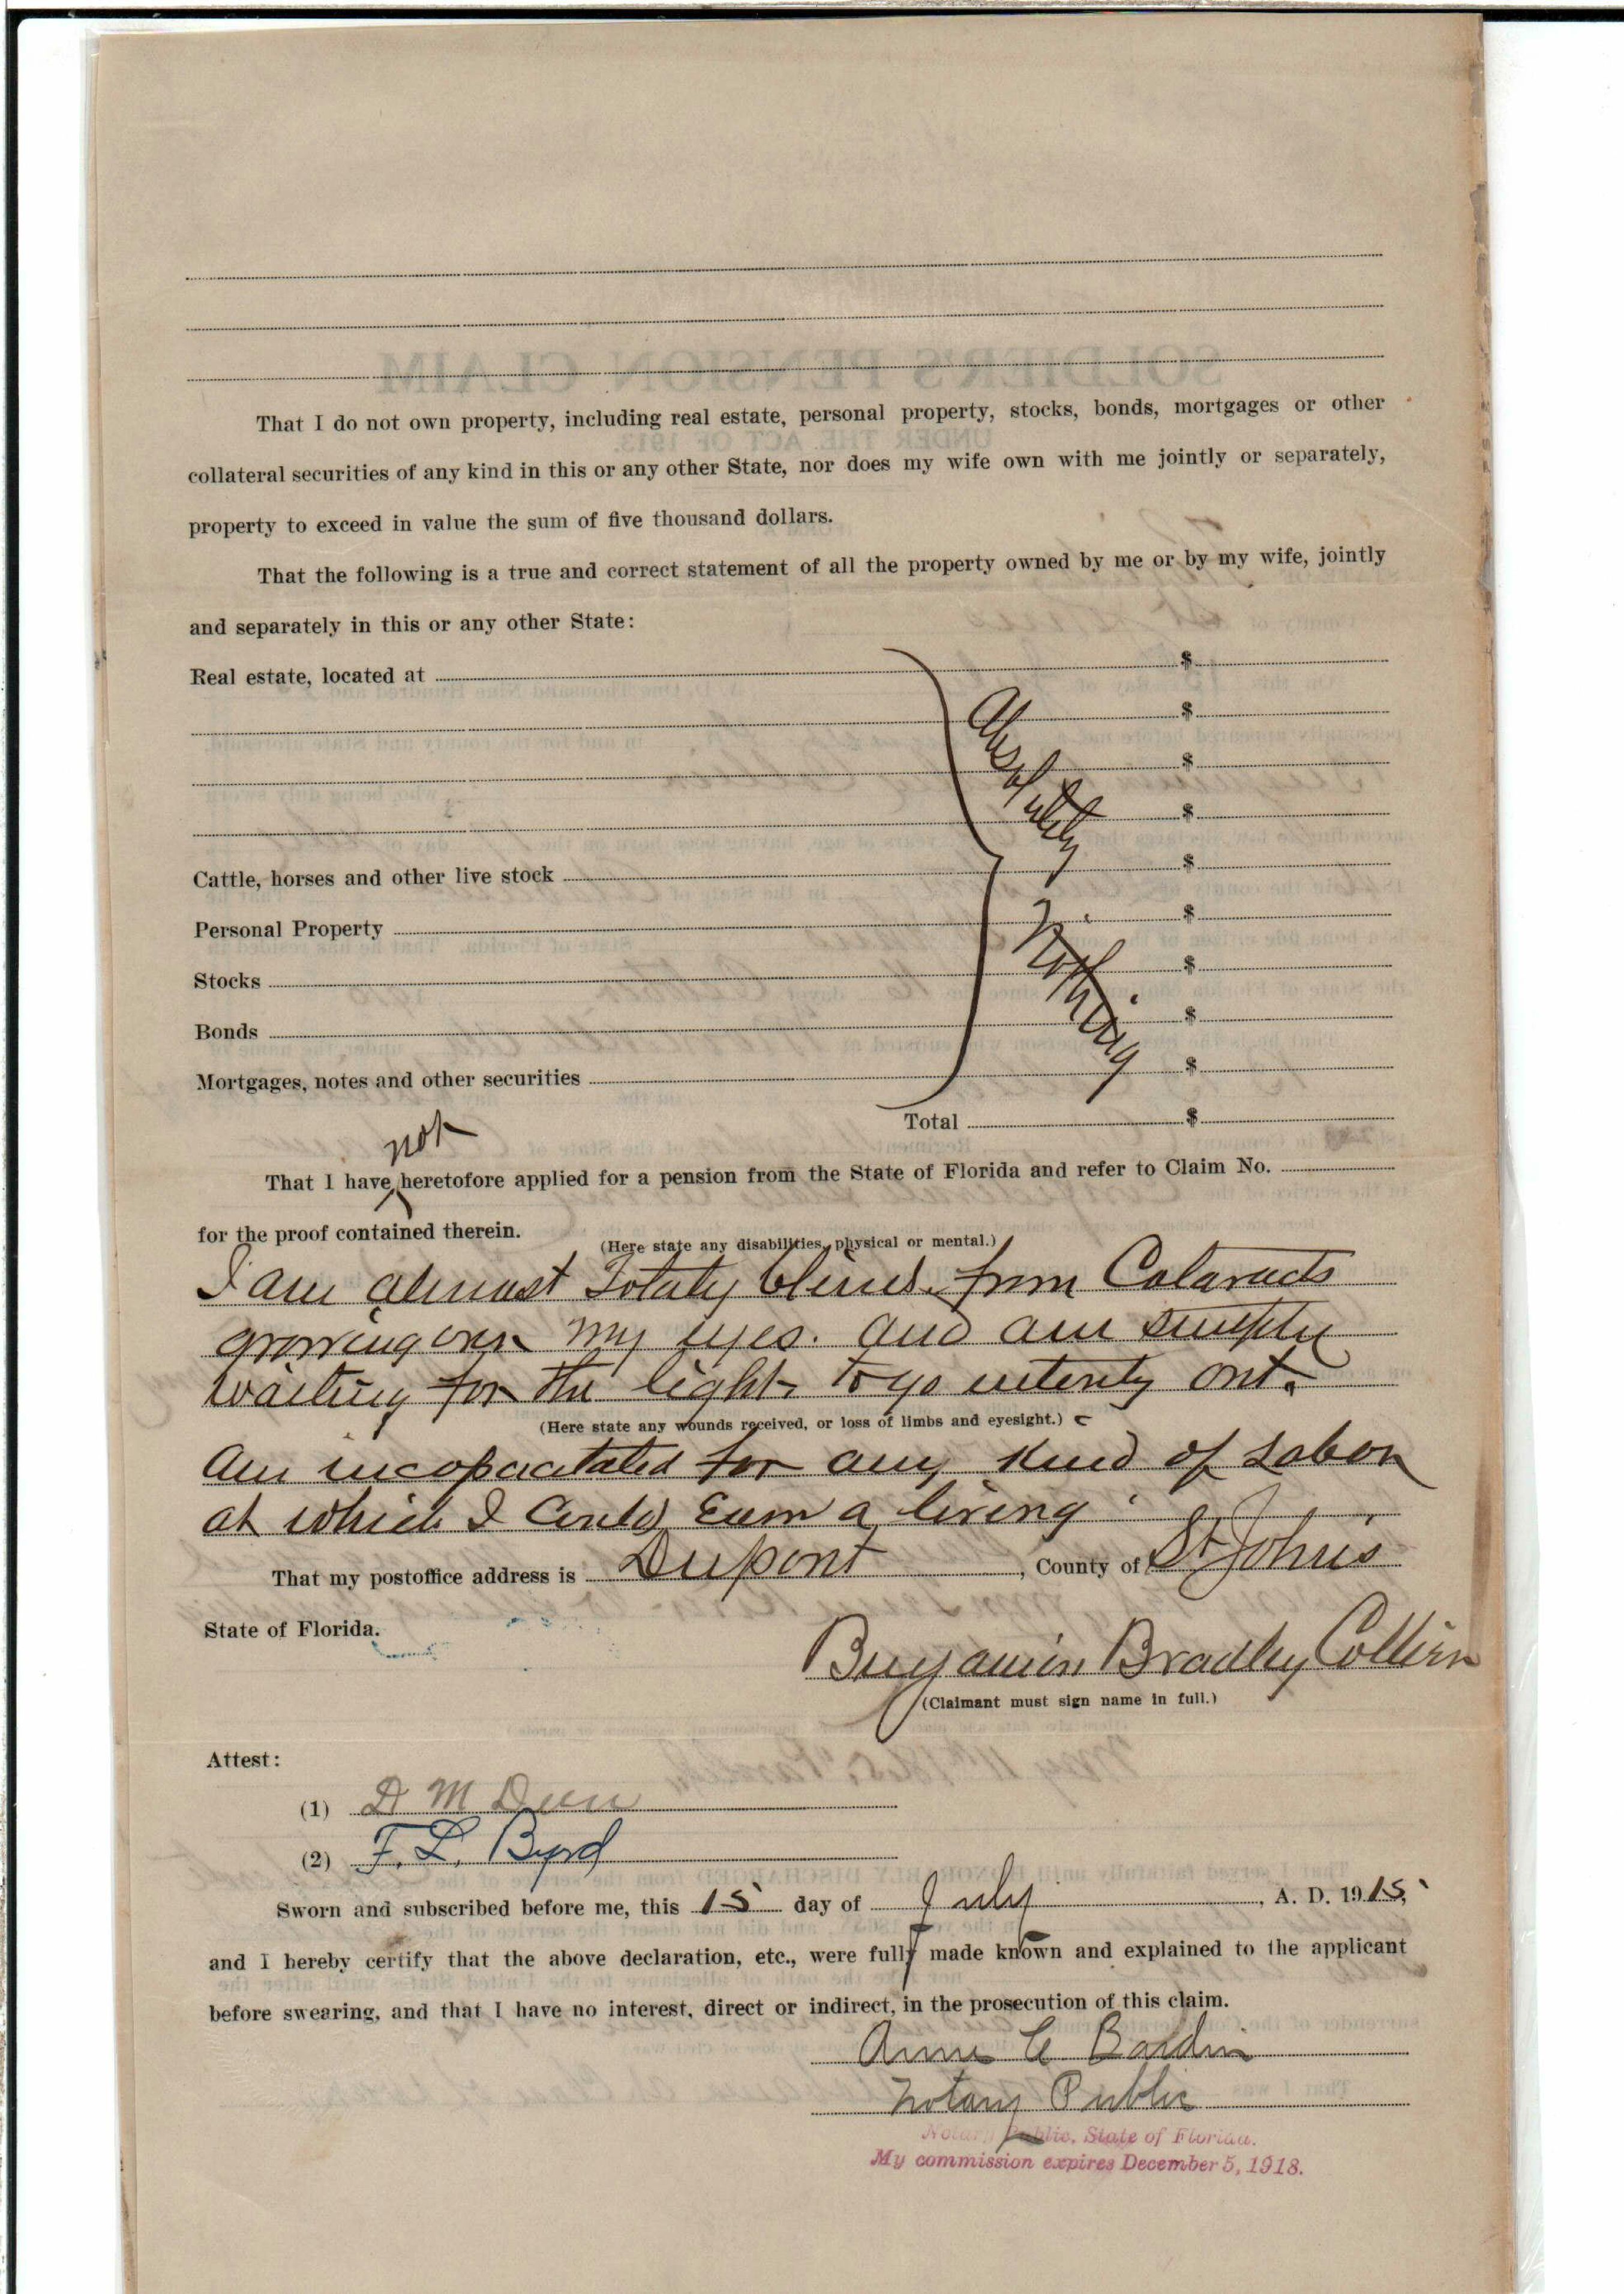 That I do not own property, including real estate, personal property, stocks, bonds, mortgages or other
collateral securities of any kind in this or any other State, nor does my wife own with me jointly or separately,
property to exceed in value the sum of five thousand dollars.
That the following is a true and correct statement of all the property owned by me or by my wife, jointly
and separately in this or any other State:
Real estate, located at $
$
$
$
Cattle, horses and other live stock $
Personal Property $
Stocks $
Bonds $
Mortgages, notes and other securities $
Absolutely
Nothing
Total $
not
That I have heretofore applied for a pension from the State of Florida and refer to Claim No.
for the proof contained therein.
(Here state any disabilities, physical or mental.)
I am almost Totaly blind from Cataracts
growing over my eyes. and am simply
waiting for the light to go entirely out.
(Here state any wounds received, or loss of limbs and eyesight.)
Am incapacitated for any kind of Labor
at which I Could Earn a living
That my postoffice address is Dupont, County of St Johns
State of Florida.
Benjamin Bradley Collier
(Claimant must sign name in full.)
Attest:
(1) D M Deen
(2) F. L. Byrd
Sworn and subscribed before me, this 15 day of July, A. D. 1915,
and I hereby certify that the above declaration, etc., were fully made known and explained to the applicant
before swearing, and that I have no interest, direct or indirect, in the prosecution of this claim.
Anne C Bardin
Notary Public
Notary Public, State of Florida.
My commission expires December 5, 1918.